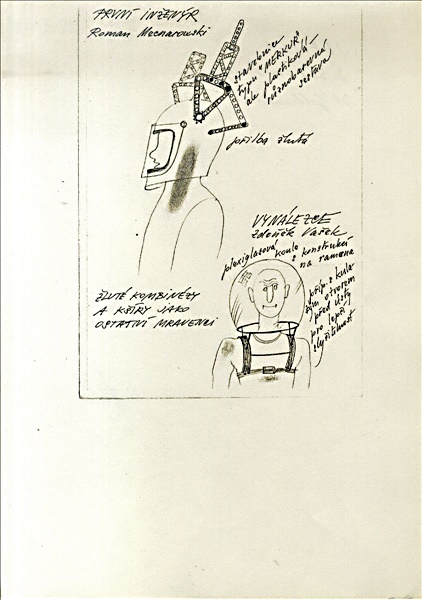 PRVNÍ INŽENÝR
Roman Mecnarowski
stavebnice
typu "MERKUR"
ale plastiková
různobarevná
sestava
přilba žlutá
VYNÁLEZCE
Zdeněk Vašek
plexiglasová koule s konstrukcí
na ramena
příp. s kula-
tým otvorem
před ústy
pro lepší
slyšitelnost
ŽLUTÉ KOMBINÉZY
A KŠÍRY JAKO
OSTATNÍ MRAVENCI